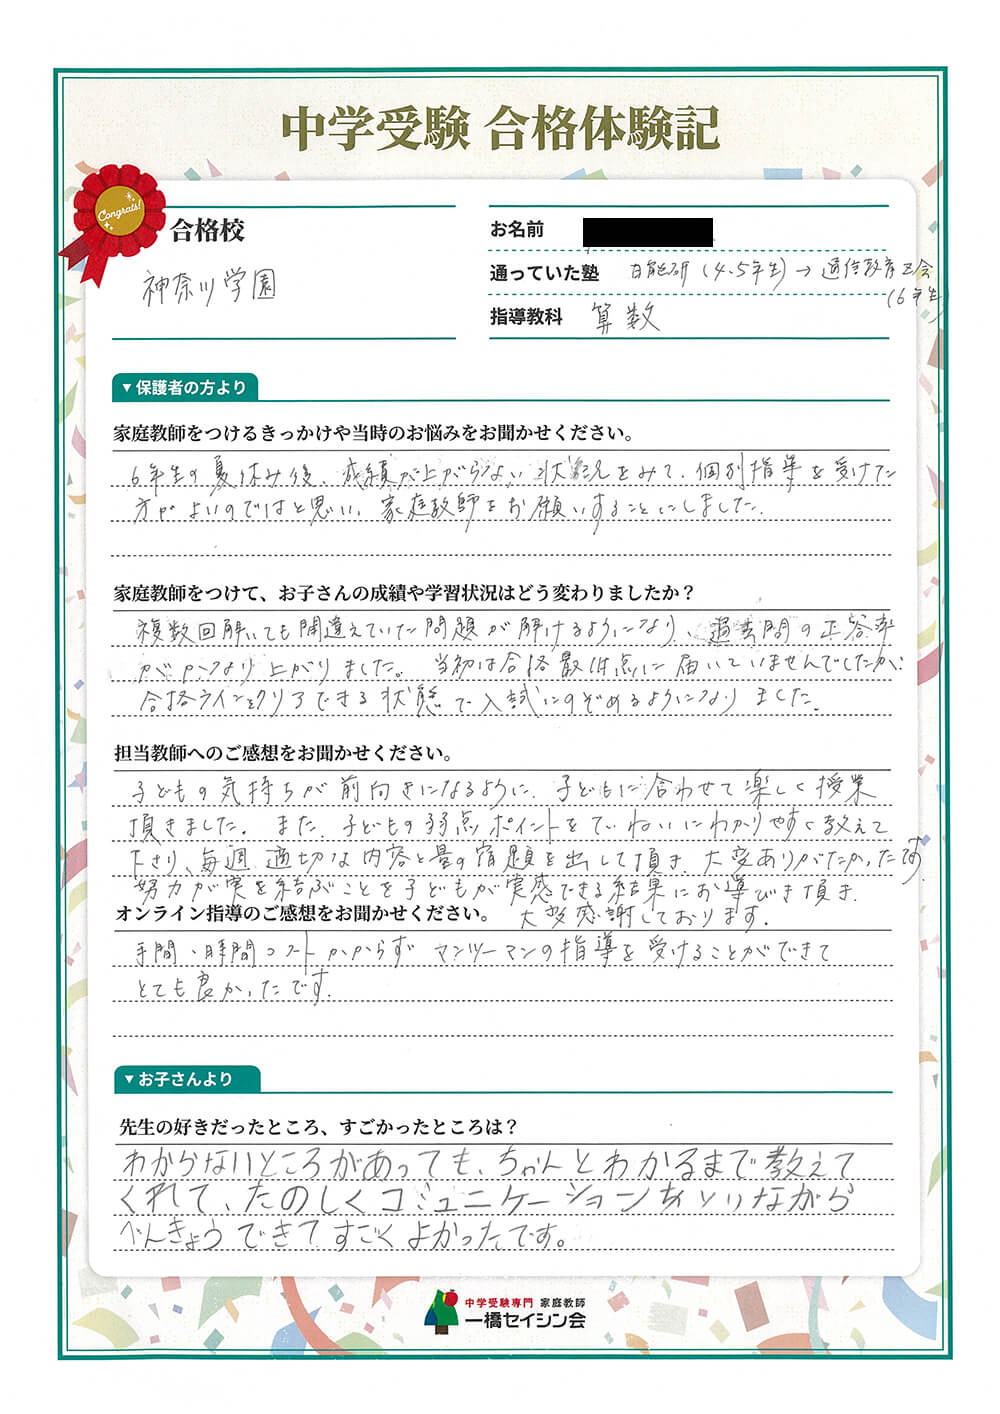 中学受験 合格体験記
Congrats!
合格校
神奈川学園
お名前
通っていた塾 日能研(4.5年生)→通信教育Z会
(6年生)
指導教科 算数
▼保護者の方より
家庭教師をつけるきっかけや当時のお悩みをお聞かせください。
6年生の夏休み後、成績が上がらない状況をみて、個別指導を受けた
方がよいのではと思い、家庭教師をお願いすることにしました。
家庭教師をつけて、お子さんの成績や学習状況はどう変わりましたか？
複数回解いても間違えていた問題が解けるようになり、過去問の正答率
がかなり上がりました。当初は合格最低点に届いていませんでしたが、
合格ラインをクリアできる状態で入試にのぞめるようになりました。
担当教師へのご感想をお聞かせください。
子どもの気持ちが前向きになるように、子どもに合わせて楽しく授業
頂きました。また、子どもの弱点ポイントをていねいにわかりやすく教えて
下さり、毎週適切な内容と量の宿題を出して頂き、大変ありがたかったです。
努力が実を結ぶことを子どもが実感できる結果にお導びき頂き、
大変感謝しております。
オンライン指導のご感想をお聞かせください。
手間・時間コストかからず マンツーマンの指導を受けることができて
とても良かったです。
▼お子さんより
先生の好きだったところ、すごかったところは？
わからないところがあっても、ちゃんとわかるまで教えて
くれて、たのしくコミュニケーションをとりながら
べんきょうできてすごくよかったです。
中学受験専門 家庭教師
一橋セイシン会